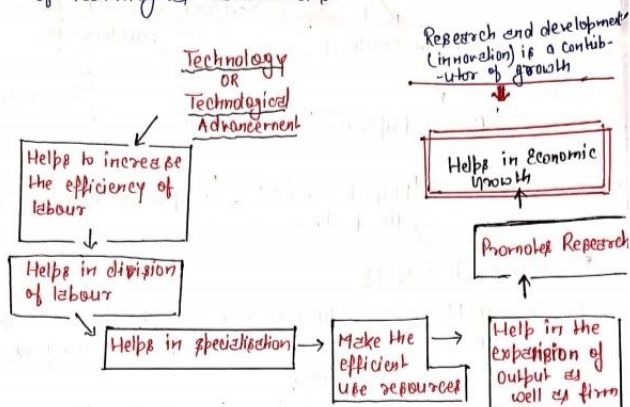 Technology
OR
Technological
Advancement
Research and development
(innovation) is a contrib-
-utor of growth
Helps to increase
the efficiency of
labour
Helps in division
of labour
Helps in specialisation
Make the
efficient
use resources
Help in the
expansion of
output as
well as firm
Promotes Research
Helps in Economic
growth